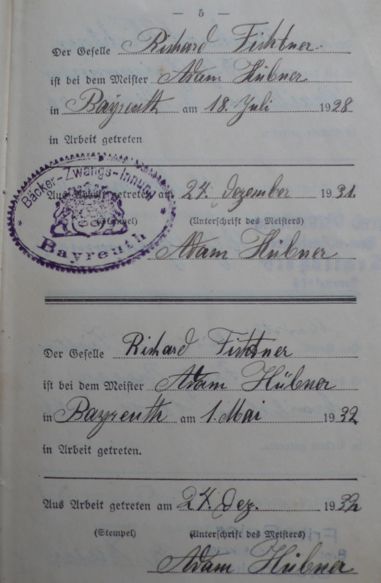 — 5 —
Der Geselle Richard Fichtner
ist bei dem Meister Adam Hübner
in Bayreuth am 18. Juli 1928
in Arbeit getreten
Aus Arbeit getreten am 24. Dezember 1931.
Bäcker-Zwangs-Innung
Bayreuth
(Stempel) (Unterschrift des Meisters)
Adam Hübner
Der Geselle Richard Fichtner
ist bei dem Meister Adam Hübner
in Bayreuth am 1. Mai 1932
in Arbeit getreten.
Aus Arbeit getreten am 24. Dez. 1932
(Stempel) (Unterschrift des Meisters)
Adam Hübner